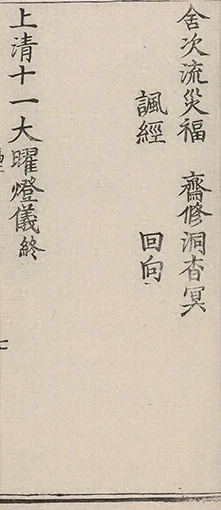 舍次流災福　齋修洞杳冥
諷經　回向
上清十一大曜燈儀終